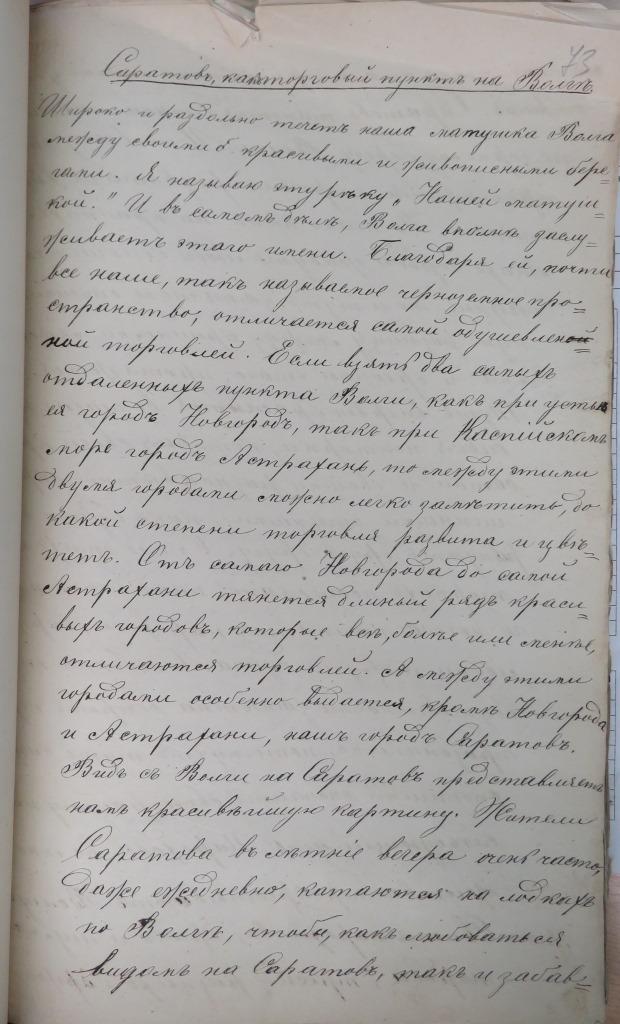 73
Саратовъ, какъ торговый пунктъ на Волгѣ
Широко и раздольно течетъ наша матушка Волга
между своими красивыми и живописными бере=
гами. Я называю эту рѣку „Нашей матуш=
кой." И въ самомъ дѣлѣ, Волга вполнѣ заслу=
живаетъ этаго имени. Благодаря ей, почти
все наше, такъ называемое черноземное про=
странство, отличается самой одушевлен
ной торговлей. Если взять два самыхъ
отдаленныхъ пункта Волги, какъ при устьѣ
ея городъ Новгородъ, такъ при Каспійскомъ
море городъ Астрахань, то между этими
двумя городами можно легко замѣтить, до
какой степени торговля развита и цвѣ=
тетъ. Отъ самаго Новгорода до самой
Астрахани тянется длиный рядъ краси=
выхъ городовъ, которые всѣ, болѣе или менѣе,
отличаются торговлей. А между этими
городами особенно выдается, кромѣ Новгорода
и Астрахани, нашъ городъ Саратовъ.
Видъ съ Волги на Саратовъ представляетъ
намъ красивѣйшую картину. Жители
Саратова въ лѣтніе вечера очень часто,
даже ежедневно, катаются на лодкахъ
по Волгѣ, чтобы, какъ любоваться
видомъ на Саратовъ, такъ и забав=